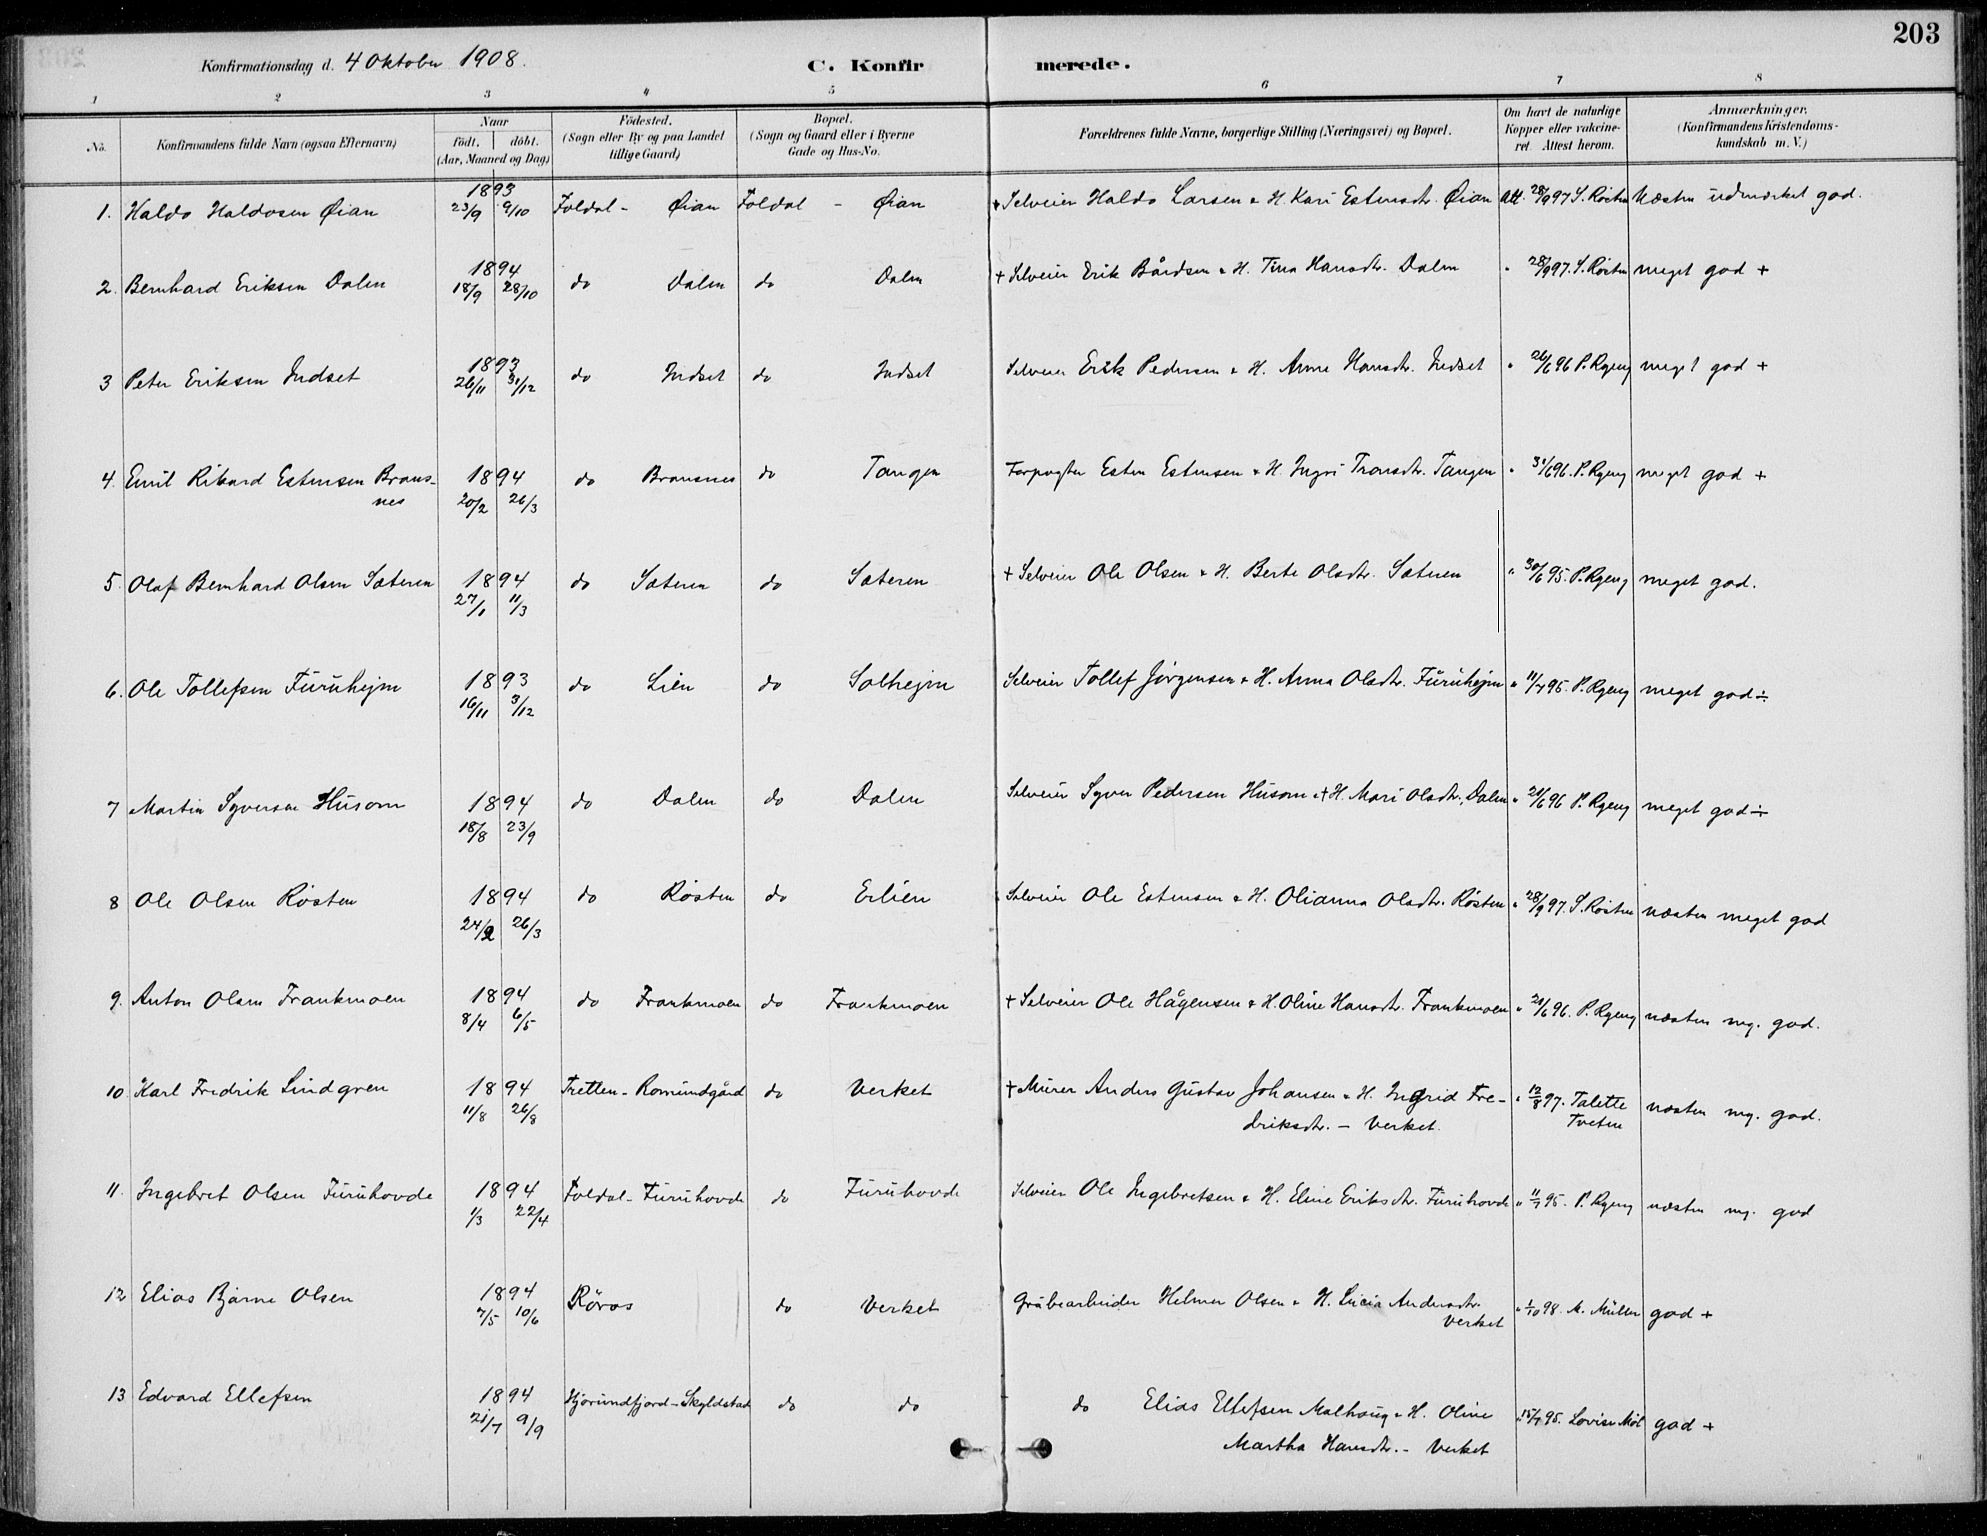 203
Konfirmationsdag d. 4 Oktober 1908.
C. Konfir merede.
1 2 3 4 5 6 7 8
No. Konfirmandens fulde Navn (ogsaa Efternavn) Naar født. døbt. (Aar, Maaned og Dag) Fødested. (Sogn eller By og paa Landet tillige Gaard) Bopæl. (Sogn og Gaard eller i Byerne Gade og Hus-No. Forældrenes fulde Navne, borgerlige Stilling (Næringsvei) og Bopæl. Om havt de naturlige Kopper eller vakcineret. Attest herom. Anmærkninger. (Konfirmandens Kristendomskundskab m. V.)
1. Haldo Haldosen Øian 1893 23/9 9/10 Foldal - Øian Foldal - Øian + Selveier Haldo Larsen & H. Kari Estensdtr. Øian Att. 28/9 97 S. Røsten Næsten udmærket god.
2. Bernhard Eriksen Dalen 1894 18/9 28/10 do Dalen do Dalen + Selveier Erik Bårdsen & H. Tina Hansdtr. Dalen " 28/9 97. S. Røsten meget god +
3 Peter Eriksen Indset 1893 26/11 31/12 do Indset do Indset Selveier Erik Pedersen & H. Anne Hansdtr. Indset " 26/6 96 P. Ryeng meget god +
4. Emil Rikard Estensen Brans-
nes 1894 20/2 26/3 do Bransnes do Tangen Forpagter Esten Estensen & H. Ingri Tronsdtr. Tangen " 31/6 96. P. Ryeng meget god +
5. Olaf Bernhard Olsen Sæteren 1894 27/1 11/3 do Sæteren do Sæteren + Selveier Ole Olsen & H. Berte Olsdtr. Sæteren " 30/6 95. P. Ryeng meget god.
6. Ole Tollefsen Furuhejm 1893 16/11 3/12 do Lien do Solhejm Selveier Tollef Jørgensen & H. Anna Olsdtr. Furuhejm " 11/7 95. P. Ryeng meget god ÷
7 Martin Syversen Husom 1894 18/8 23/9 do Dalen do Dalen Selveier Syver Pedersen Husom & + H. Mari Olsdtr., Dalen " 21/6 96 P. Ryeng meget god ÷
8 Ole Olsen Røsten 1894 24/2 26/3 do Røsten do Erlien Selveier Ole Estensen & H. Olianna Olsdtr. Røsten " 28/9 97. S. Røsten næsten meget god
9. Anton Olsen Frankmoen 1894 8/4 6/5 do Frankmoen do Frankmoen + Selveier Ole Hågensen & H. Oline Hansdtr. Frankmoen " 21/6 96. P. Ryeng næsten mg. god.
10 Karl Fredrik Lindgren 1894 11/8 26/8 Tretten - Romundgård do Verket + Murer Anders Gustav Johansen & H. Ingrid Fre-
driksdtr. - Verket. " 12/8 97. Talette Tveten næsten mg. god.
11. Ingebret Olsen Furuhovde 1894 1/3 22/4 Foldal - Furuhovde do Furuhovde Selveier Ole Ingebretsen & H. Eline Eriksdtr. Furuhovde " 11/7 95. P. Ryeng næsten mg. god
12 Elias Bjarne Olsen 1894 7/5 10/6 Röros do Verket Grubearbeider Helmer Olsen & H. Lucia Andersdtr.
Verket " 1/10 98. M. Müller god +
13 Edvard Ellefsen 1894 21/7 9/9 Hjørundfjord - Skyldstad do do do Elias Ellefsen Malhaug & H. Oline
Martha Hansdtr. - Verket " 15/7 95. Lovise Møl god +